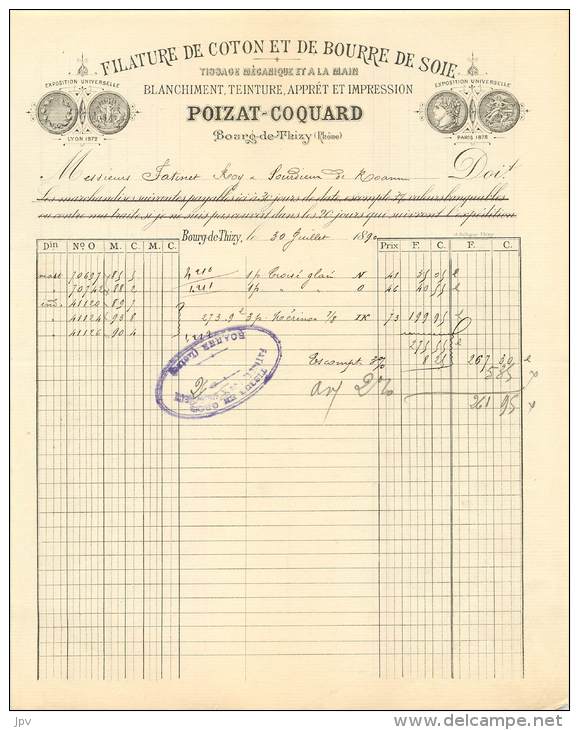 FILATURE DE COTON ET DE BOURRE DE SOIE
TISSAGE MÉCANIQUE ET A LA MAIN
BLANCHIMENT, TEINTURE, APPRÊT ET IMPRESSION
POIZAT-COQUARD
Bourg-de-Thizy (Rhône)
EXPOSITION UNIVERSELLE
LYON 1872
EXPOSITION UNIVERSELLE
PARIS 1878
Messieurs Fatinet & Sourdieux de Roanne Doit
Les marchandises suivantes payables ici à 30 jours de date, escompte
ou contre nos traites si je ne suis pas couvert dans les 20 jours qui suivront l'expédition
Bourg-de-Thizy, le 30 Juillet 1890
Din Nos O M. C. M. C. Prix F. C. F. C.
70697 85 5 1p Croisé glacé N 41 35 05
70742 88 2 1p " " O 46 40 55
41120 89 7
41124 93 8 273.92 3p Mérinos 7/8 IK 73 199 95
41126 90 4
275 55
Escompte 3% 8 25 267 30
2% 5 35
261 95
TISSUS EN GROS
ROANNE (Loire)
delcampe.net
jpv